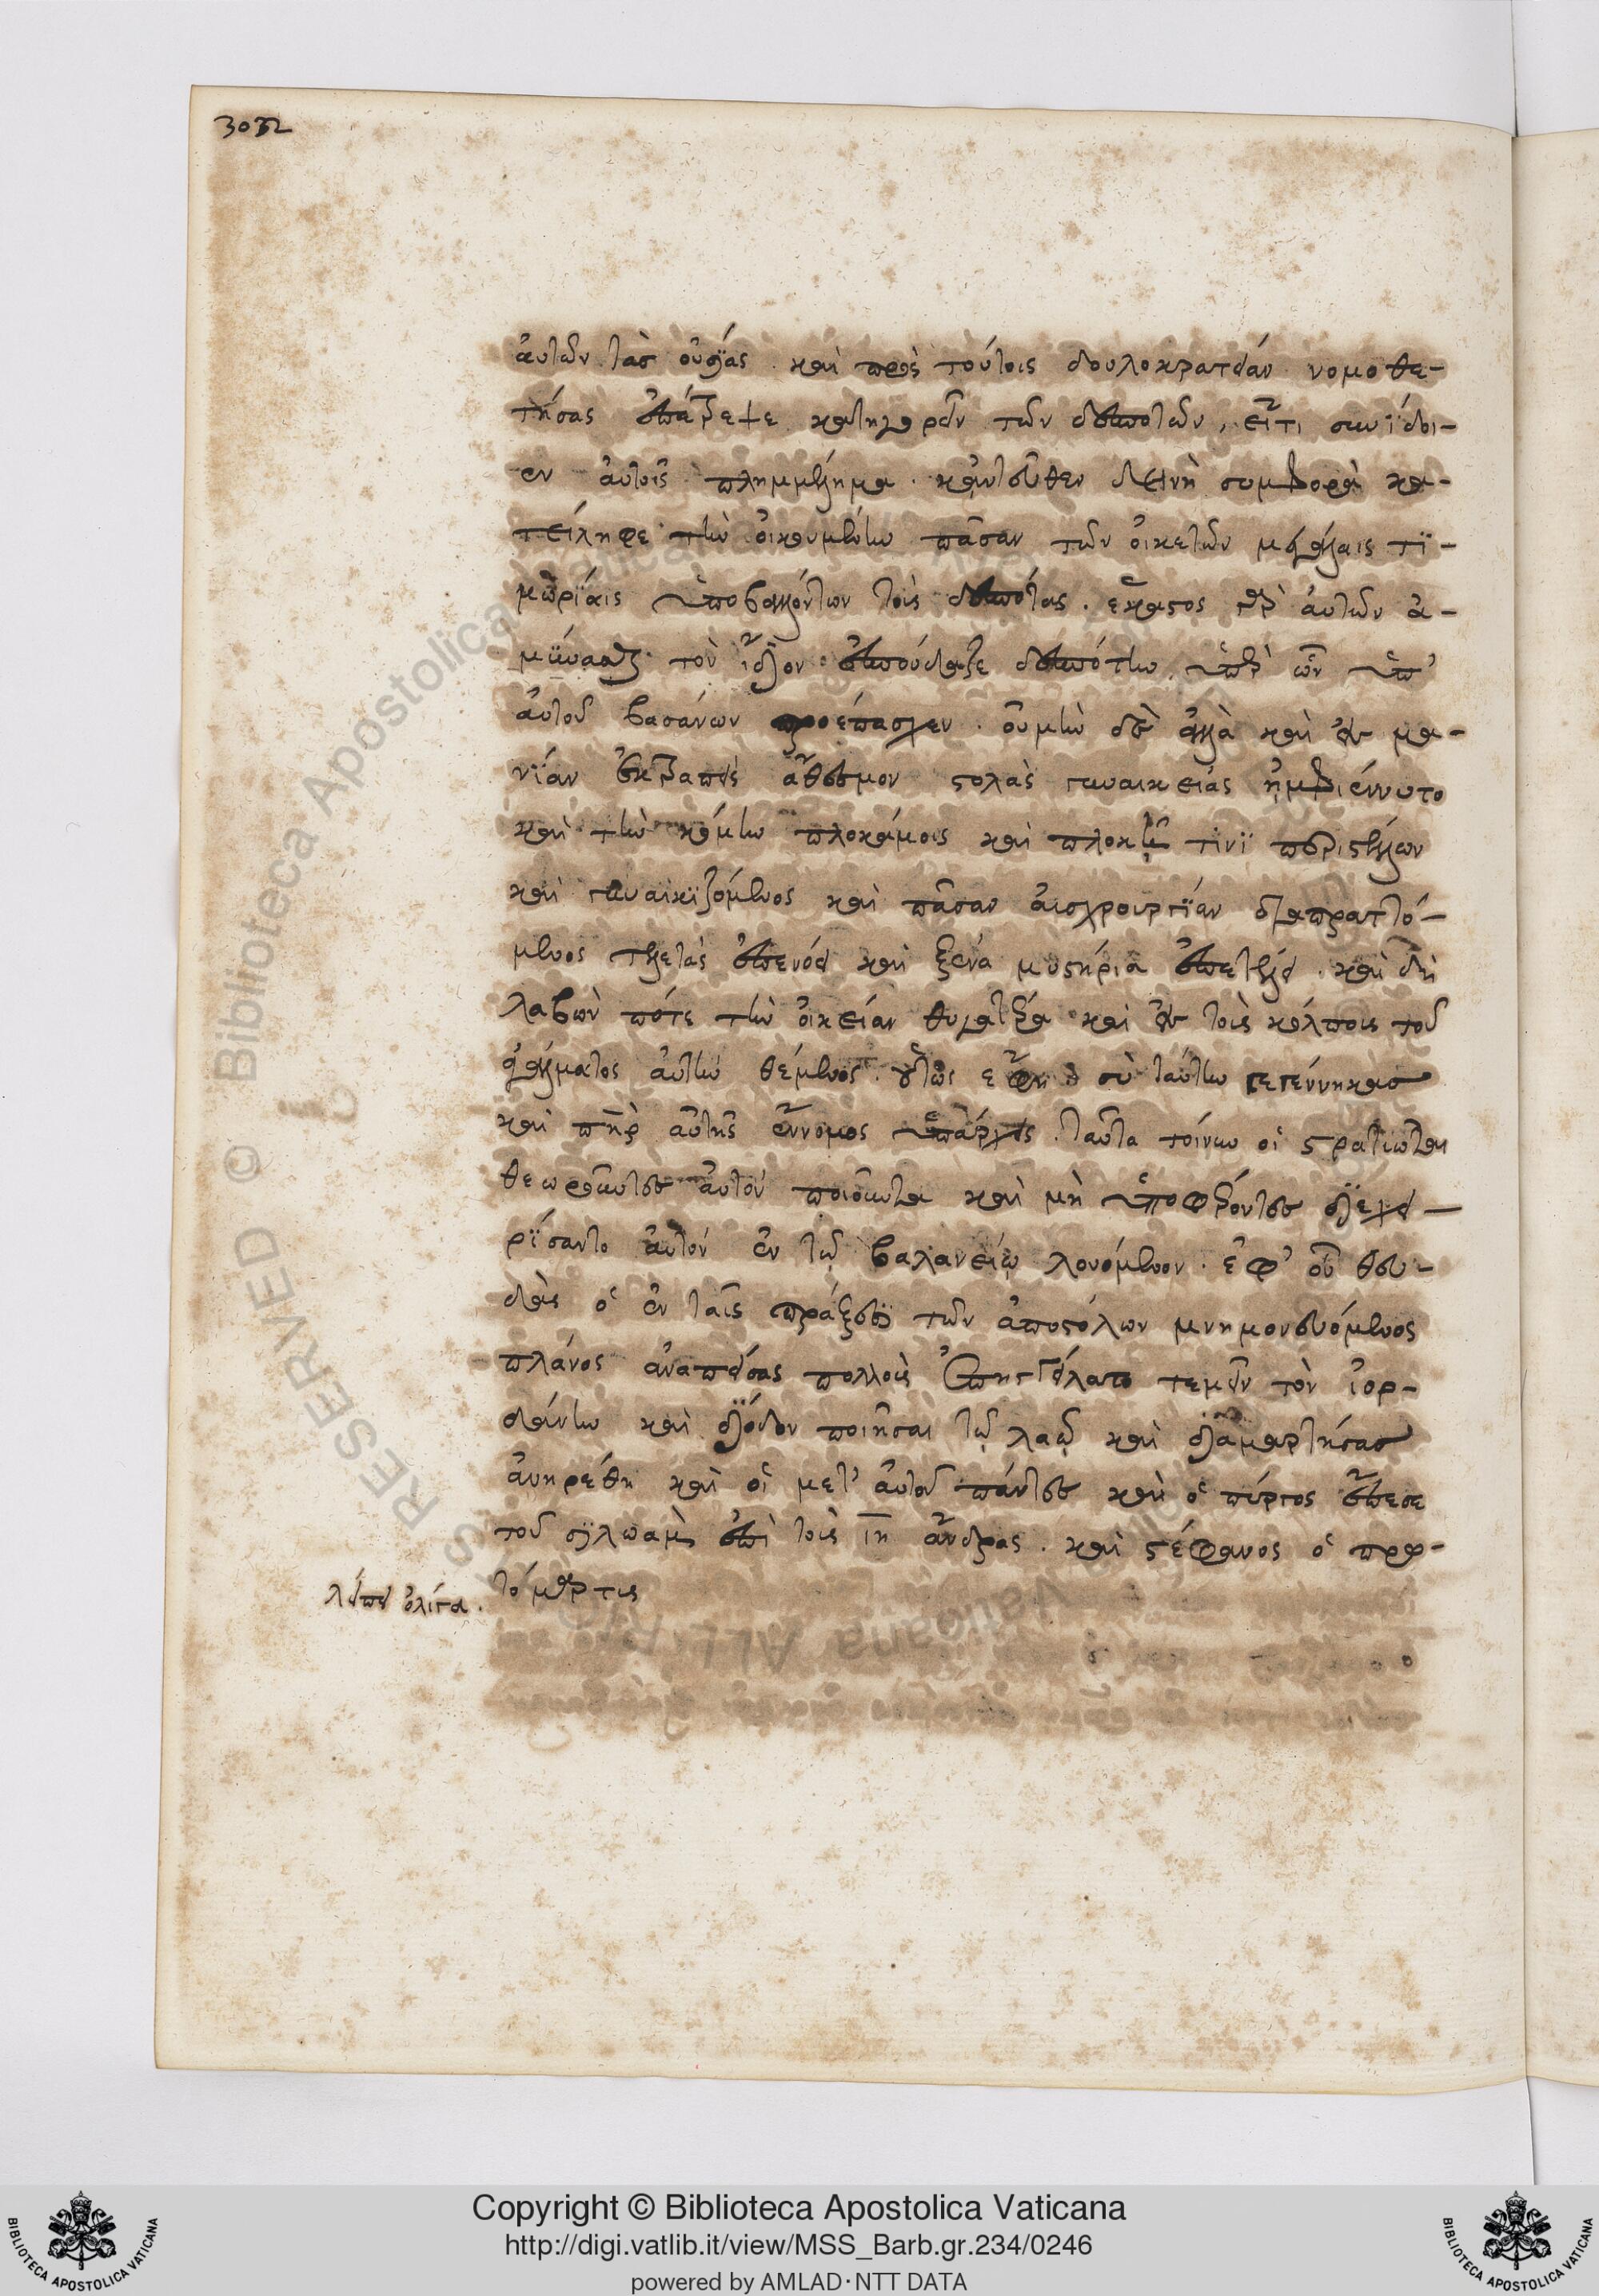 αὐτῶν τὰς οὐσίας. καὶ πρὸς τούτοις δουλοκρατείαν νομοθε-
τήσας ἐπέτρεψε κατηγορεῖν τῶν δεσποτῶν, εἴτι συνΐδοι-
εν αὐτοῖς πλημμέλημα. κἀντεῦθεν δεινὴ συμφορὰ κα-
τείληφε τὴν οἰκουμένην πᾶσαν τῶν οἰκετῶν μεγάλαις τϊ-
μωρΐαις ὑποβαλλόντων τοὺς δεσπότας. ἕκαστος γὰρ αὐτῶν ἀ-
μύνασθαι τὸν ἴδιον ἐσπούδαζε δεσπότην, ὑπὲρ ὧν ὑπ'
αὐτοῦ βασάνων προέπασχεν. οὐ μὴν δὲ ἀλλὰ καὶ εἰς μα-
νΐαν ἐκτραπεὶς ἄθεσμον στολὰς γυναικείας ἠμφιέννυτο
καὶ τὴν κόμην πλοκάμοις καὶ πλοκῇ τινϊ περιστέλλων
καὶ γυναικϊζόμενος καὶ πᾶσαν αἰσχρουργΐαν διαπραττό-
μενος τελετάς ἐπενόει καὶ ξένα μυστήρια ἐπετέλει. καὶ δὴ
λαβών ποτε τὴν οἰκείαν θυγατέρα καὶ ἐν τοῖς κόλποις τοῦ
ἀγάλματος αὐτὴν θέμενος. οὕτως ἔφη σὺ ταύτην γεγέννηκας
καὶ πηρ αὐτῆς ἔννομος ὑπάρχεις. ταῦτα τοίνυν οἱ στρατιῶται
θεωροῦντες αὐτόν ποιοῦντα καὶ μὴ ὑποφέροντες διεχει-
ρΐσαντο αὐτόν ἐν τῷ βαλανείῳ λουόμενον. ἐφ' οὗ θευ-
δὰς ὁ ἐν ταῖς πράξεσϊ τῶν ἀποστόλων μνημονευόμενος
πλάνος ἀναπείσας πολλοὺς ἐπηγγείλατο τεμεῖν τὸν ἰορ-
δάνην καὶ δίοδον ποιῆσαι τῷ λαῷ καὶ διαμαρτήσας
ἀνηρέθη καὶ οἱ μετ' αὐτοῦ πάντες καὶ ὁ πύργος ἔπεσε
τοῦ σϊλωαμ ἐπὶ τοὺς ιη ἄνδρας. καὶ στέφανος ὁ πρω-
τόμαρτυς
λείπει ὀλίγα.
Copyright © Biblioteca Apostolica Vaticana
http://digi.vatlib.it/view/MSS_Barb.gr.234/0246
powered by AMLAD·NTT DATA